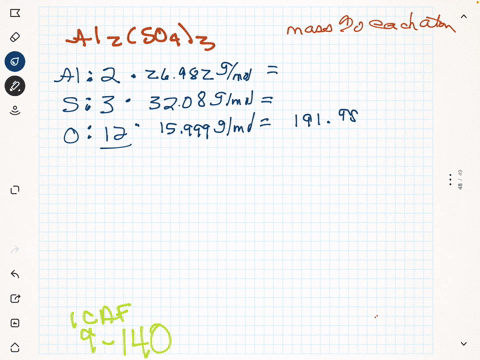 Al2(SO4)3
mass % each atom
Al: 2 · 26.982 g/mol =
S: 3 · 32.08 g/mol =
O: 12 · 15.999 g/mol = 191.98
1 CAF
9-140